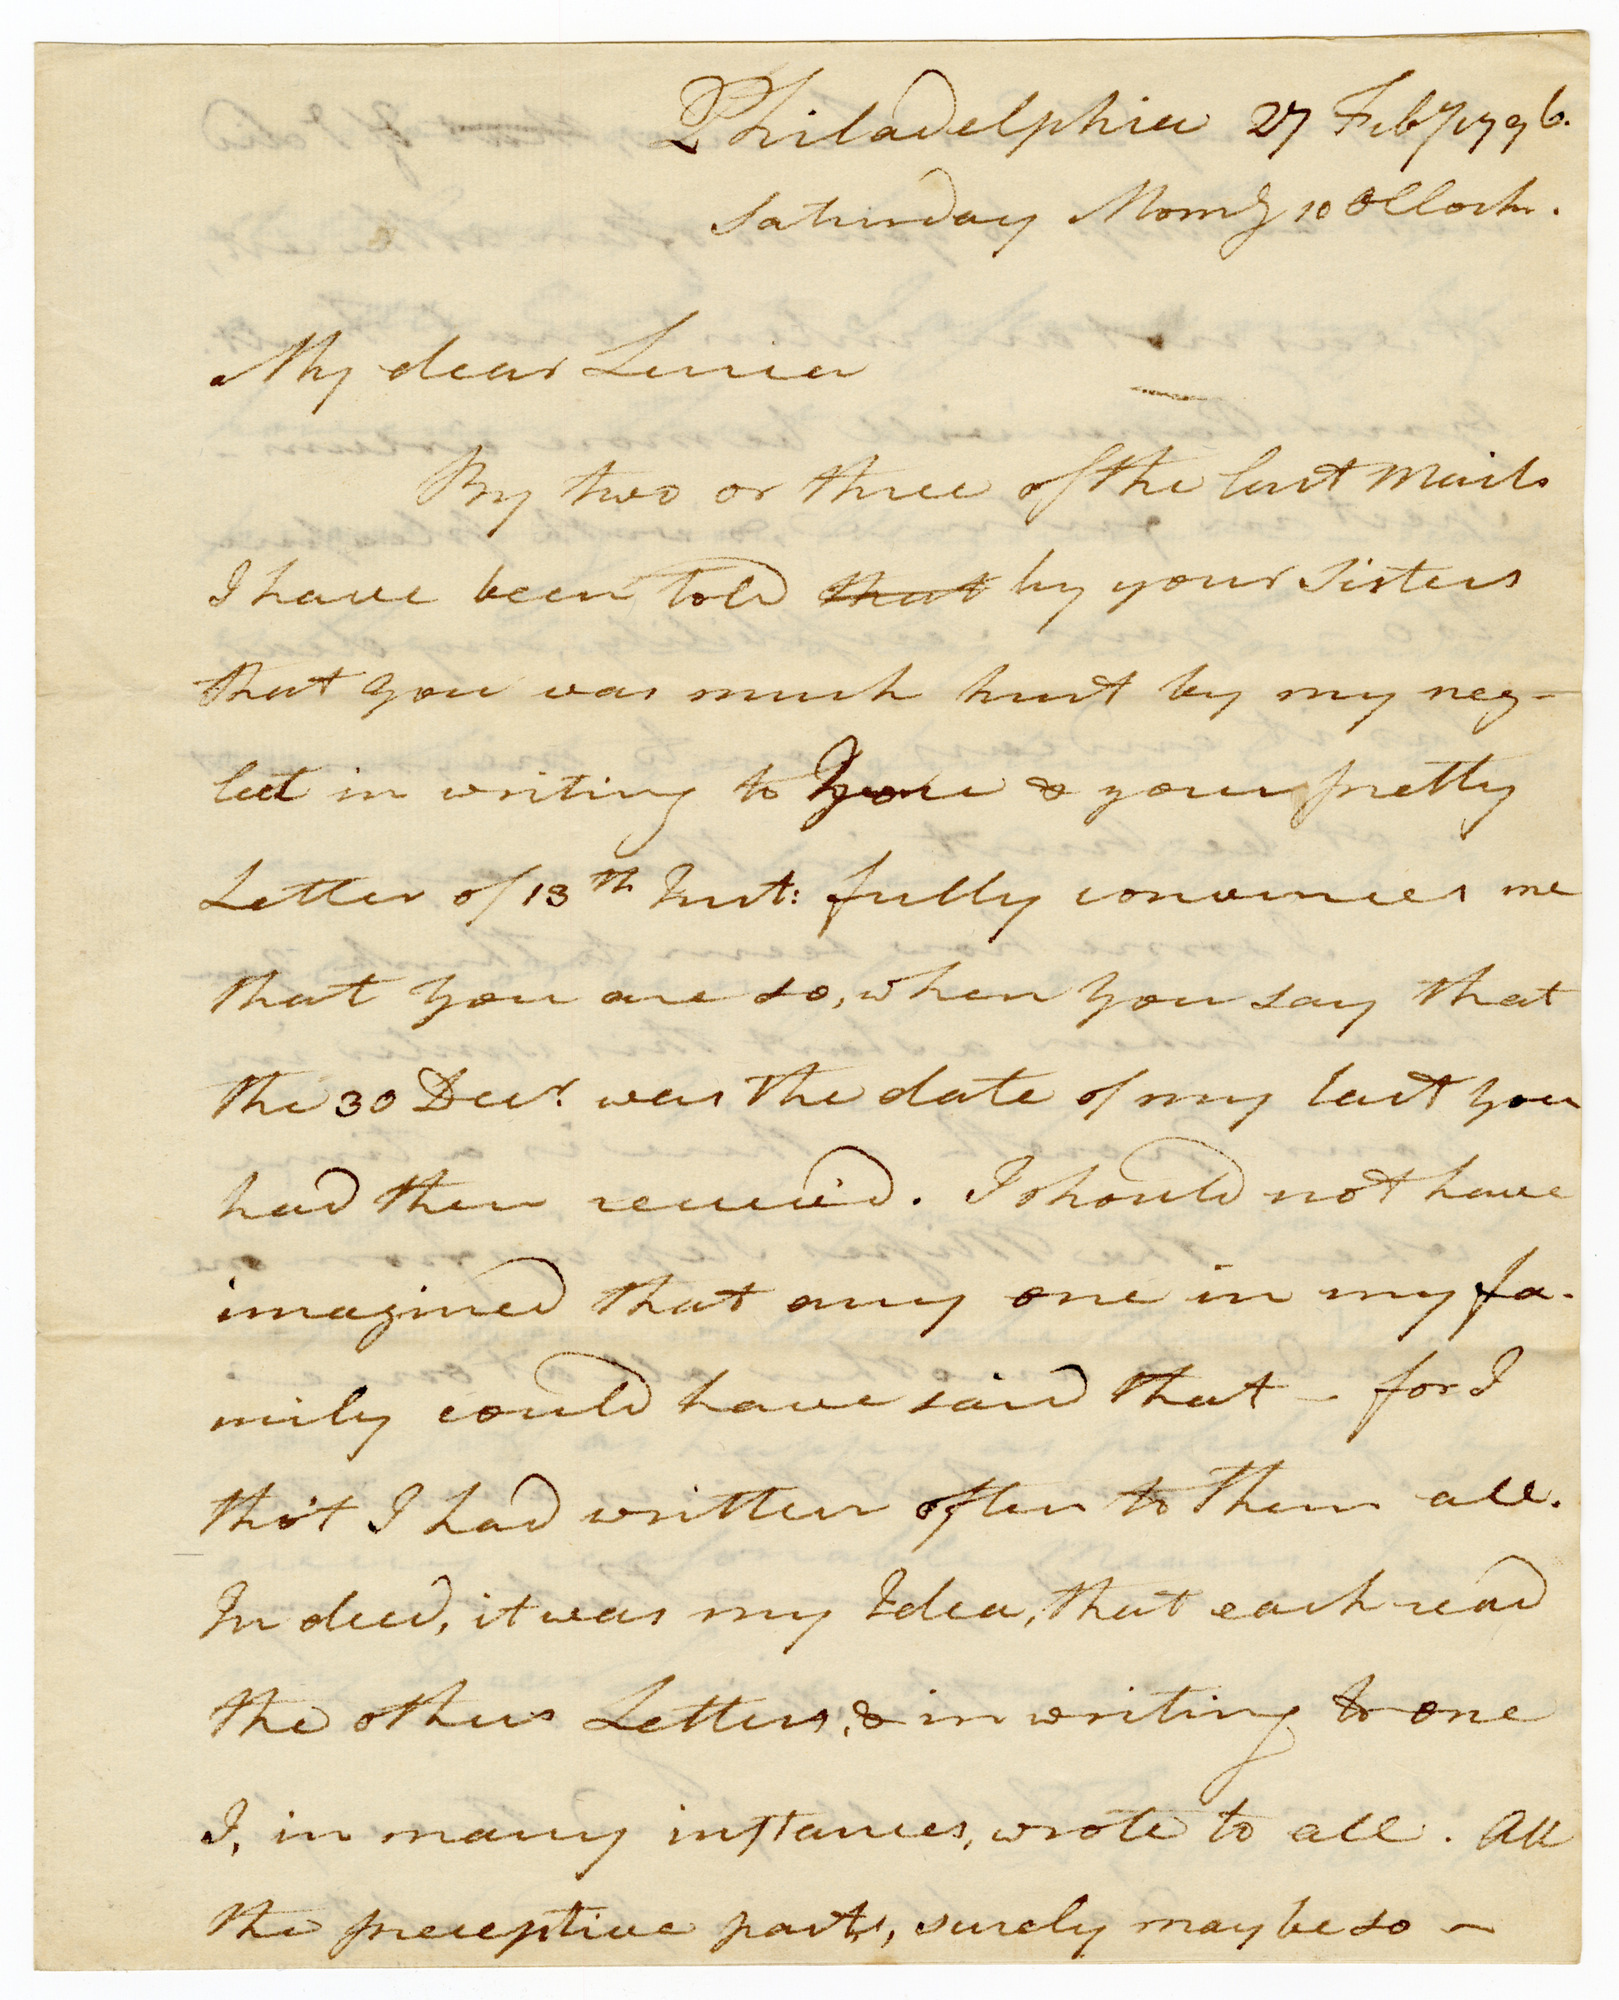 Philadelphia 27 Feby 1796.
Saturday Morng 10 OClock.
My dear Lucia
By two or three of the last Mails
I have been told that by your Sisters
that you was much hurt by my neg-
lect in writing to you & your pretty
Letter of 13th Inst: fully convinces me
that you are so, when you say that
the 30 Decr. was the date of my last you
had then receiv'd. I should not have
imagined that any one in my fa-
mily could have said that – for I
tho't I had written often to them all.
Indeed, it was my Idea, that each read
the others Letters, & in writing to one
I, in many instances, wrote to all. All
the preceptive parts, surely may be so –